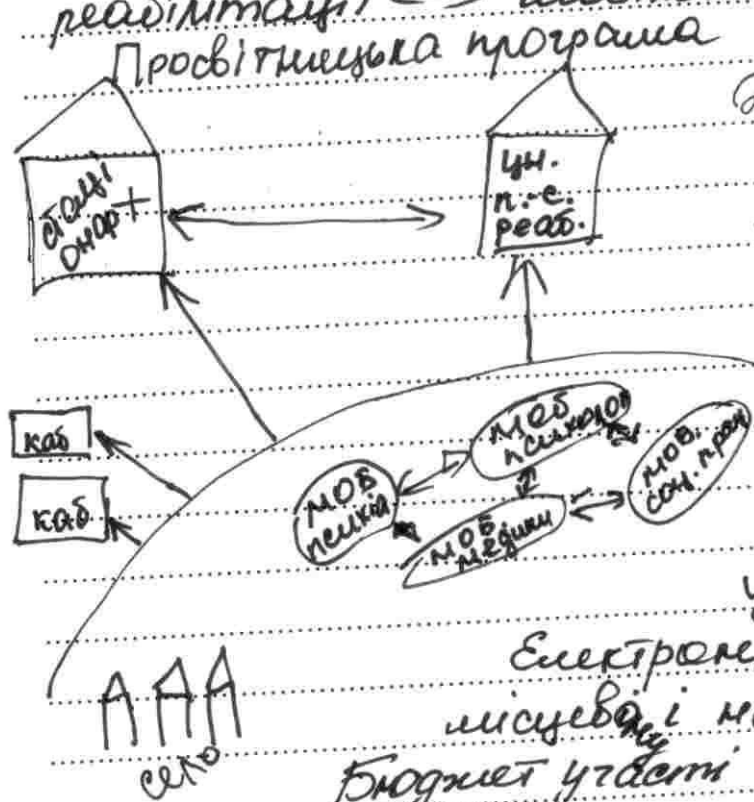 реабілітації
Просвітницька програма
стаці
онар +
цн.
п.-с.
реаб.
каб
каб
моб
психіа
моб
психолог
моб.
соц. прац
моб
медики
село
Електрон
місцевому і н
Бюджет участі